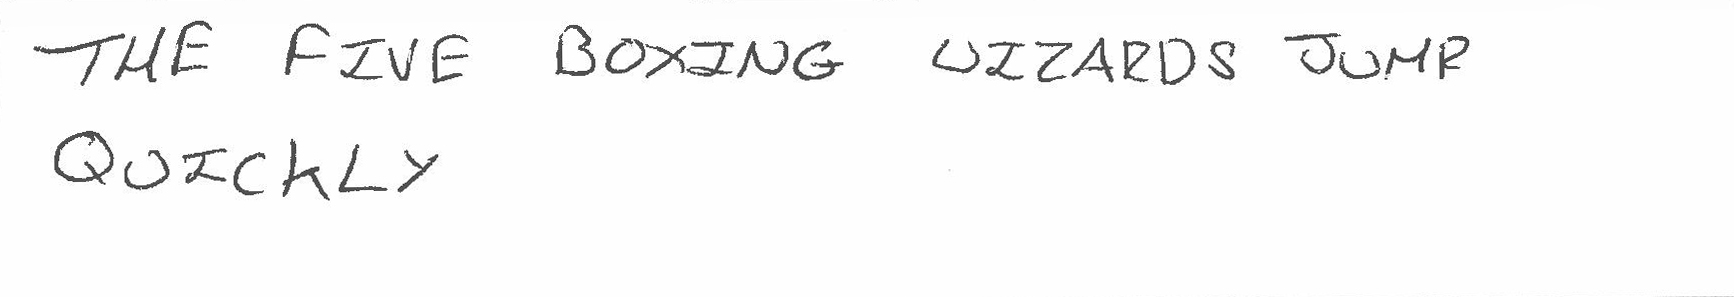 THE FIVE BOXING WIZARDS JUMP
QUICKLY